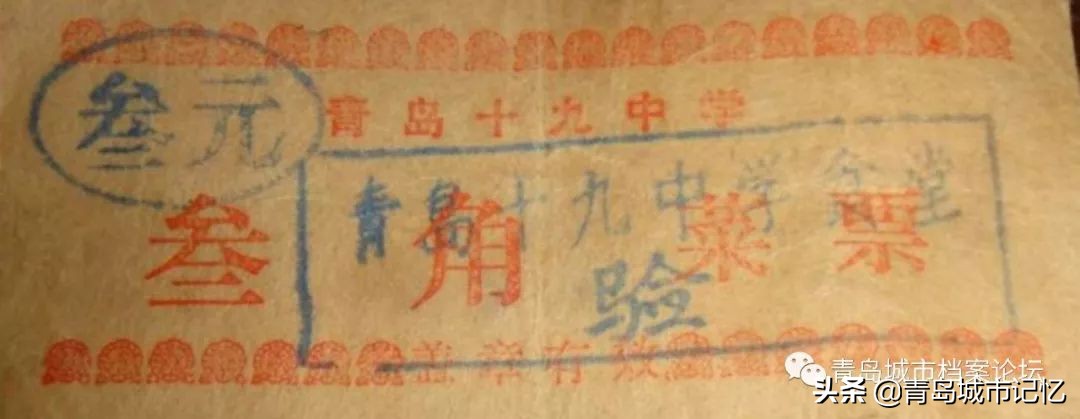 叁元
青岛十九中学
青島十九中学食堂
叁角菜票
验
盖章有效
青岛城市档案论坛
头条 @青岛城市记忆